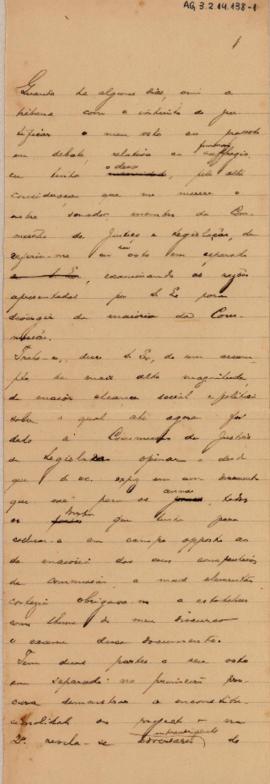 AG, 3.2.14.138-1
1
Quando ha alguns dias, vim á
tribuna com o intuito de jus-
tificar o meu voto ao projecto
em debate, relativo ao suffragio,
eu tinha o dever, pela alta
consideração que me merece o
nobre senador, membro da Com-
missão de Justiça e Legislação, de
referir-me ao voto em separado
examinando as razões
apresentadas por S. Ex. para
divergir da maioria da Com-
missão.
Trata-se, disse S. Ex., de um assum-
pto da mais alta magnitude,
de maior alcance social e politico
sobre o qual até agora foi
dado á Commissão de Justiça
e Legislação opinar e desde
que S. Ex. em um documento
que para os todos
os que tinha para
collocar-se em campo opposto ao
da maioria dos seus companheiros
de commissão, a mais elementar
cortezia obrigava-me a estabelecer
como thema do meu discurso
o exame desse documento.
Tem duas partes o seu voto
em separado: na primeira pro-
cura demonstrar a inconstitu-
cionalidade do projecto e na
2ª revela-se adversario do